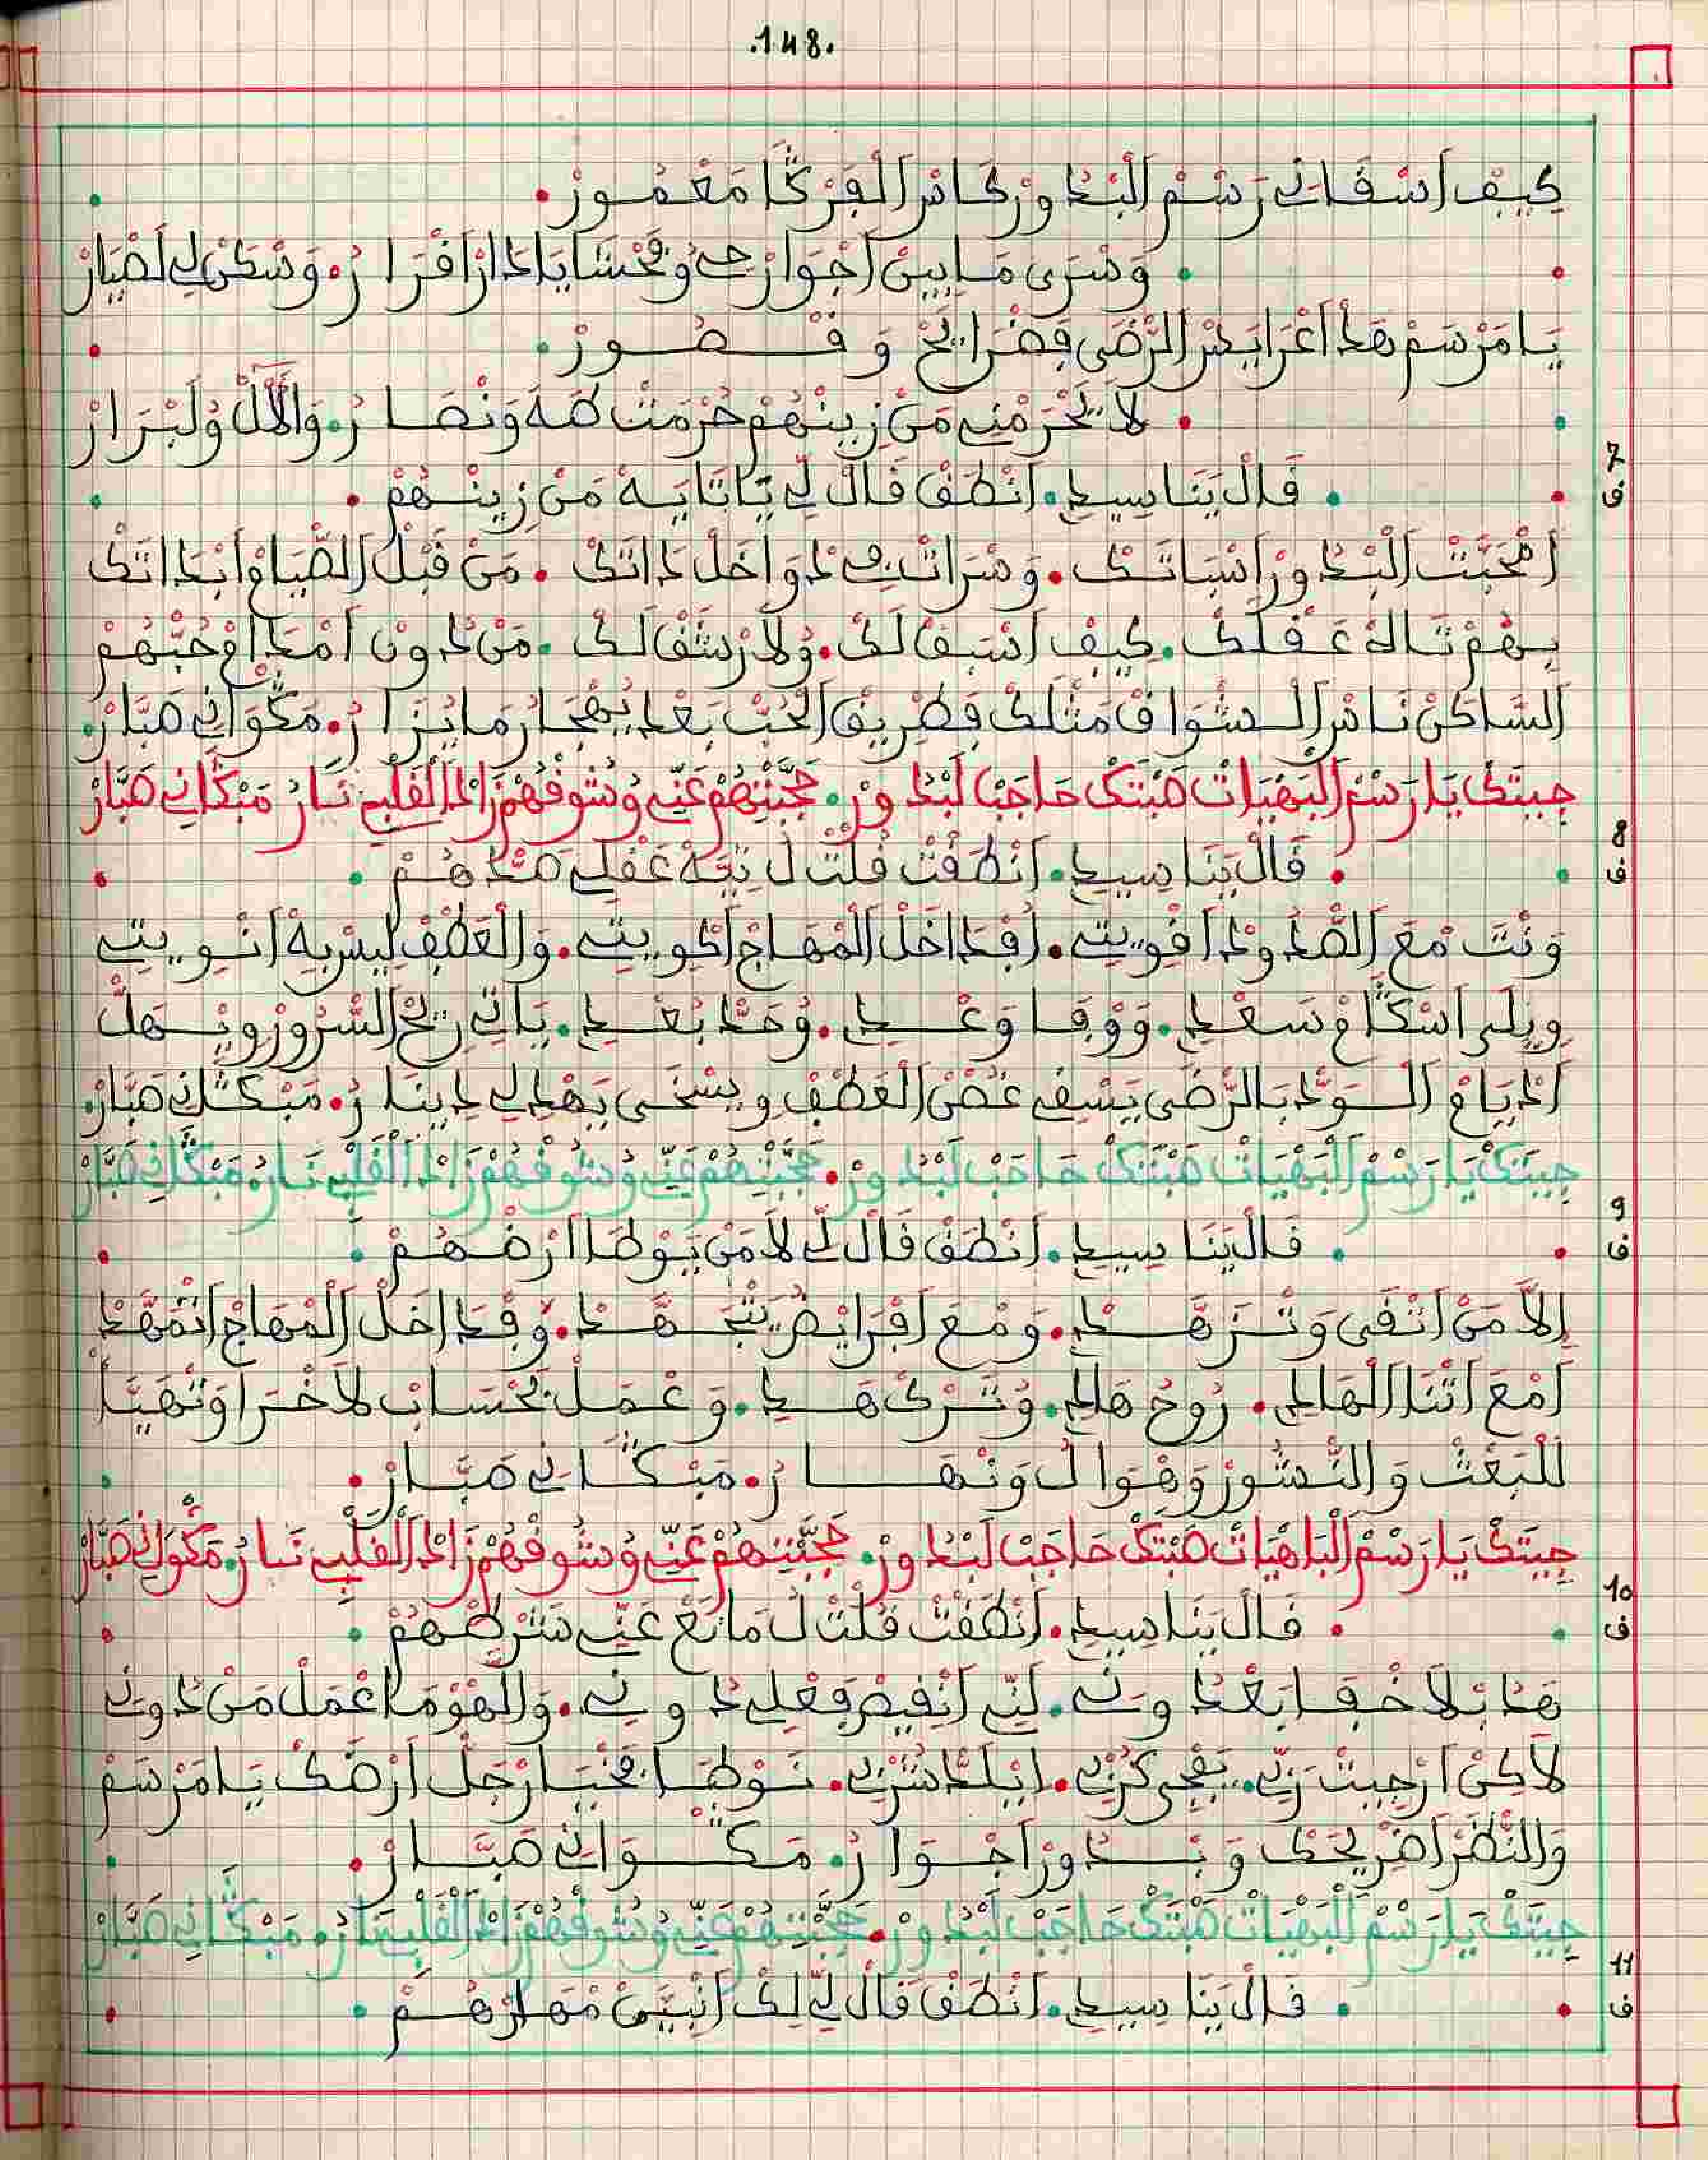 .148.
كِيفْ اَسْقَانِي رَسْمْ الْبْدُورْ كَاسْ الْفَرْكَا مَعْمُورْ.
وَسْرَى مَابِينْ اَجْوَارْحِي وُفَحْشَايَا دَارْ اَقْرَارُ. وَسْكَنْ لِي لَصْيَارْ
يَا مَرْسَمْ هَذْ اَغْرَايَسْ الرّْضَى فَضْرَايَحْ وَقْصُورْ.
لَا تَحْرَمْنِي مَنْ زِينْهُمْ حُرْمَتْ طَهَ وَنْصَارُ. وَالْاَلْ وُلَبْرَارْ
7
ف
قَالْ يَنَا سِيدِي. اَنْطَقْ قَالْ لِّي يَا تَايَهْ مَنْ زِينْهُمْ
اَعْجَبْتْ الْبْدُورْ اَسْبَاتَكْ. وَسْرَاتْ فِي دْوَاخَلْ دَاتَكْ. مَنْ قَبْلْ الصّْيَامْ اَبْدَاتَكْ
بِهُمْ تَالَهْ عَقْلَكْ. كِيفْ اَسْبَقَالَكْ. وُلَا رْشَقَالَكْ. مَنْ دُونْ اَمْدَامْ حُبّْهُمْ
السَّاكَنْ نَاسْ الْشْوَاقْ مَثْلَكْ فَطْرِيقْ الْحُبّْ بَعْدْ يُهْجَارْ مَا يْزَارُ. مَكْوَانِي صَبَّارْ.
جِيتَكْ يَا رَسْمْ الْبَهْيَاتْ صَبْتَكْ حَاجَبْ لَبْدُورْ. حَجَّبْتِهُمْ عَنِّي وُشُوفْهُمْ زَادْ الْقَلْبِي نَارُ مَبْكَانِي صَبَّارْ
8
ف
قَالْ يَنَا سِيدِي. اَنْطَقْتْ قُلْتْ لُ تِيَّهْ عَقْلِي صَدّْهُمْ
وَنْتَ مْعَ الصّْدُودْ اَقْوِيتِي. اَفْدَاخَلْ الْمْهَاجْ اَكْوِيتِي. وَالْعَطْفْ لِيسْ بِهْ اَنْوِيتِي
وِيلَى اَسْكَامْ سَعْدِي. وَوْفَا وَعْدِي. وُحَدّْ بُعْدِي. يَاتِي رِيحْ السّْرُورْ وِيْهَلّْ
اَدْيَامْ الْوَدّْ بَالرّْضَى يَسْقِي غُصْنْ الْعَطْفْ وِيسْخَى يَهْدِي لِي دِينَارُ. مَبْكَانِي صَبَّارْ.
جِيتَكْ يَا رَسْمْ الْبَهْيَاتْ صَبْتَكْ حَاجَبْ لَبْدُورْ. حَجَّبْتِهُمْ عَنِّي وُشُوفْهُمْ زَادْ الْقَلْبِي نَارُ. مَبْكَانِي صَبَّارْ
9
ف
قَالْ يَنَا سِيدِي. اَنْطَقْ قَالْ لِّي لَا مَنْ يَوْطَا اَرْضْهُمْ
اِلَّا مَنْ اَتْقَى وَتْزَهَّدْ. وَمْعَ اَفْرَايْضُ يَتْجَهَّدْ. وَفْدَاخَلْ الْمْهَاجْ اَتْمَهَّدْ
اَمْعَ اَثْنَا الْهَادِي. رُوحْ هَادِي. وُتَرْكْ هَدِي. وَعْمَلْ بَحْسَابْ لَاخْرَا وَتْهَيَّا
لَلْبَعْثْ وَالنّْشُورْ وَهْوَالُ وَنْهَارُ. مَبْكَانِي صَبَّارْ.
جِيتَكْ يَا رَسْمْ الْبَاهْيَاتْ صَبْتَكْ حَاجَبْ لَبْدُورْ. حَجَّبْتِهُمْ عَنِّي وُشُوفْهُمْ زَادْ الْقَلْبِي نَارُ. مَكْوَانِي صَبَّارْ
10
ف
قَالْ يَنَا سِيدِي. اَنْطَقْتْ قُلْتْ لُ مَانَعْ عَنِّي شَرْطْهُمْ
هَدْ بْلَا خْفَا بَعْدُونِي. لَنِّي اَنْقِيضْ فَعْلِي دُونِي. وَالْهَوْ مَا اعْمَلْ مَنْ دُونِي
لَاكِنْ اَرْجِيتْ رَبِّي. يَفْجِي كُرْبِي. اِيلَدّْ شُرْبِي. نَوْطَا فَحْبَارْ جَلّْ اَرْضَكْ يَا مَرْسَمْ
وَالنّْظَرْ اَضْرِيحَكْ وَبْدُورْ اَجْوَارُ. مَكْوَانِي صَبَّارْ.
جِيتَكْ يَا رَسْمْ لَلْبَهْيَاتْ صَبْتَكْ حَاجَبْ لَبْدُورْ. حَجَّبْتِهُمْ عَنِّي وُشُوفْهُمْ زَادْ الْقَلْبِي نَارُ. مَبْكَانِي صَبَّارْ
11
ف
قَالْ يَنَا سِيدِي. اَنْطَقْ قَالْ لِّي لَكْ اَنْبَيَّنْ مْهَارْهُمْ